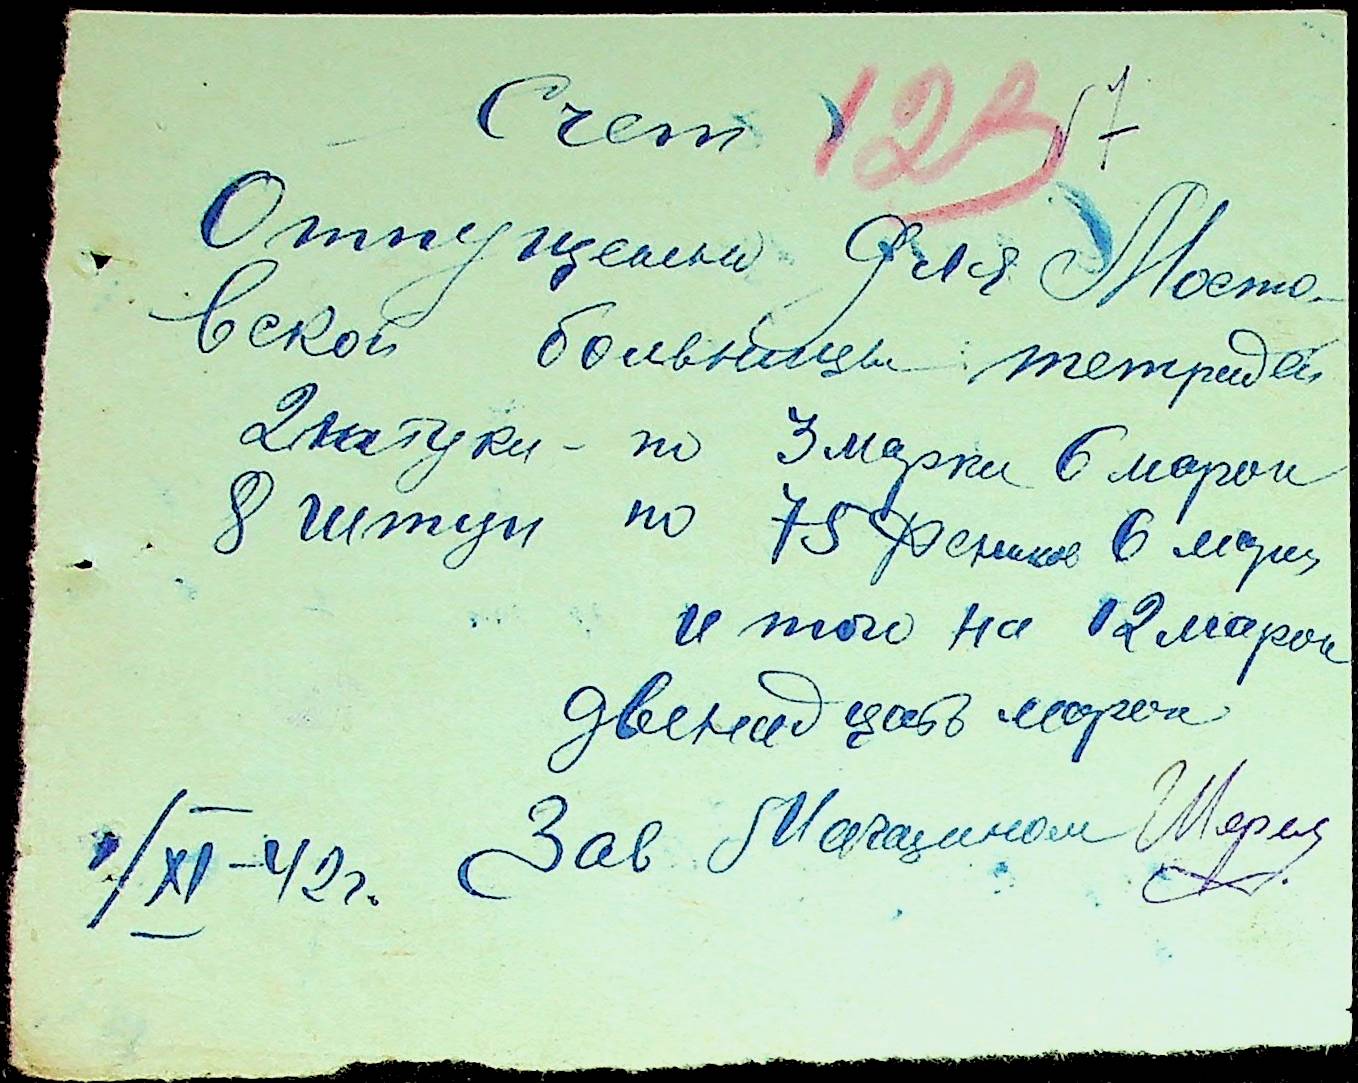 Счет 123 №7
Отпущены для Мосто-
вской больницы тетрадей
2 штуки - по 3 марки 6 марок
8 штук по 75 Фенигов 6 марк
и того на 12 марок
двенадцать марок
1/XI-42г. Зав Магазином